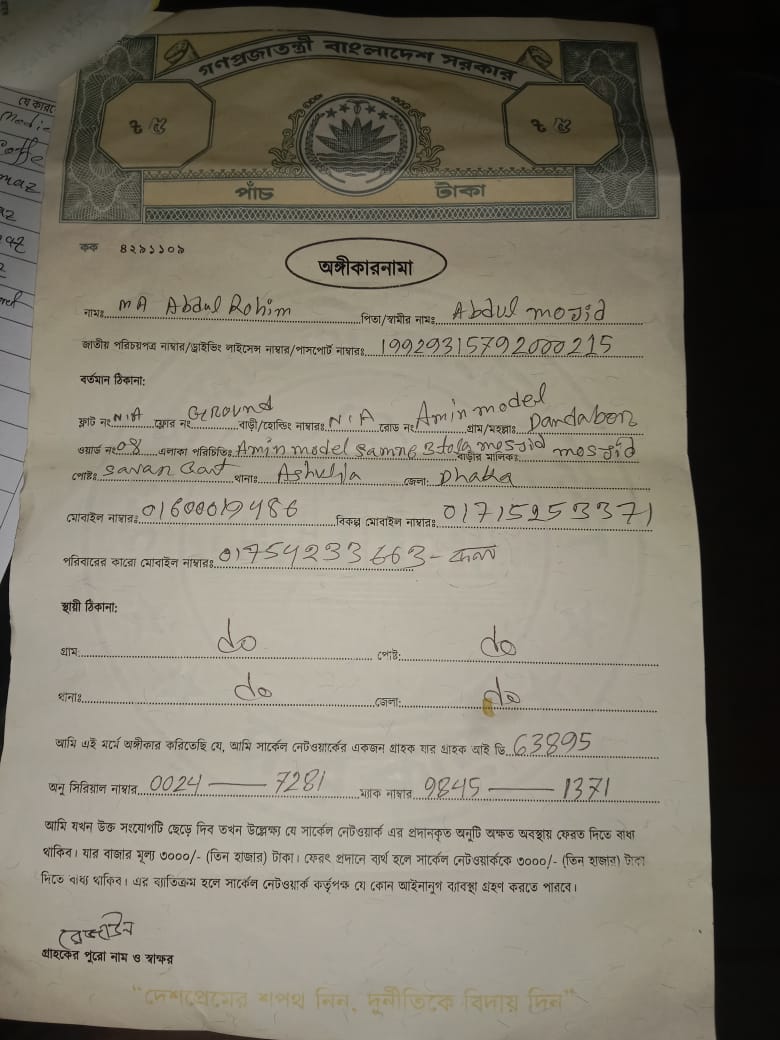 গণপ্রজাতন্ত্রী বাংলাদেশ সরকার
৳ ৫ ৳ ৫
পাঁচ টাকা
কক ৪২৯১১০৯
অঙ্গীকারনামা
নামঃ MA Abdul Rohim পিতা/স্বামীর নামঃ Abdul mojid
জাতীয় পরিচয়পত্র নাম্বার/ড্রাইভিং লাইসেন্স নাম্বার/পাসপোর্ট নাম্বারঃ 19929315792000215
বর্তমান ঠিকানা:
ফ্লাট নং N/A ফ্লোর নং GEROUND বাড়ী/হোল্ডিং নাম্বারঃ N/A রোড নং Amin model গ্রাম/মহল্লাঃ Dandabor
ওয়ার্ড নং 08 এলাকা পরিচিতিঃ Amin model samne 3 tola mosjid বাড়ীর মালিকঃ mosjid
পোষ্টঃ savar Cant থানাঃ Ashulia জেলা: Dhaka
মোবাইল নাম্বারঃ 01600019486 বিকল্প মোবাইল নাম্বারঃ 01715253371
পরিবারের কারো মোবাইল নাম্বারঃ 01754233663-
স্থায়ী ঠিকানা:
গ্রাম: do পোষ্ট: do
থানাঃ do জেলা: do
আমি এই মর্মে অঙ্গীকার করিতেছি যে, আমি সার্কেল নেটওয়ার্কের একজন গ্রাহক যার গ্রাহক আই ডি 63895
অনু সিরিয়াল নাম্বার 0024 — 7281 ম্যাক নাম্বার 9845 — 1371
আমি যখন উক্ত সংযোগটি ছেড়ে দিব তখন উল্লেক্ষ্য যে সার্কেল নেটওয়ার্ক এর প্রদানকৃত অনুটি অক্ষত অবস্থায় ফেরত দিতে বাধ্য
থাকিব। যার বাজার মূল্য ৩০০০/- (তিন হাজার) টাকা। ফেরৎ প্রদানে ব্যর্থ হলে সার্কেল নেটওয়ার্ককে ৩০০০/- (তিন হাজার) টাকা
দিতে বাধ্য থাকিব। এর ব্যাতিক্রম হলে সার্কেল নেটওয়ার্ক কর্তৃপক্ষ যে কোন আইনানুগ ব্যাবস্থা গ্রহণ করতে পারবে।
গ্রাহকের পুরো নাম ও স্বাক্ষর
"দেশপ্রেমের শপথ নিন, দুর্নীতিকে বিদায় দিন"